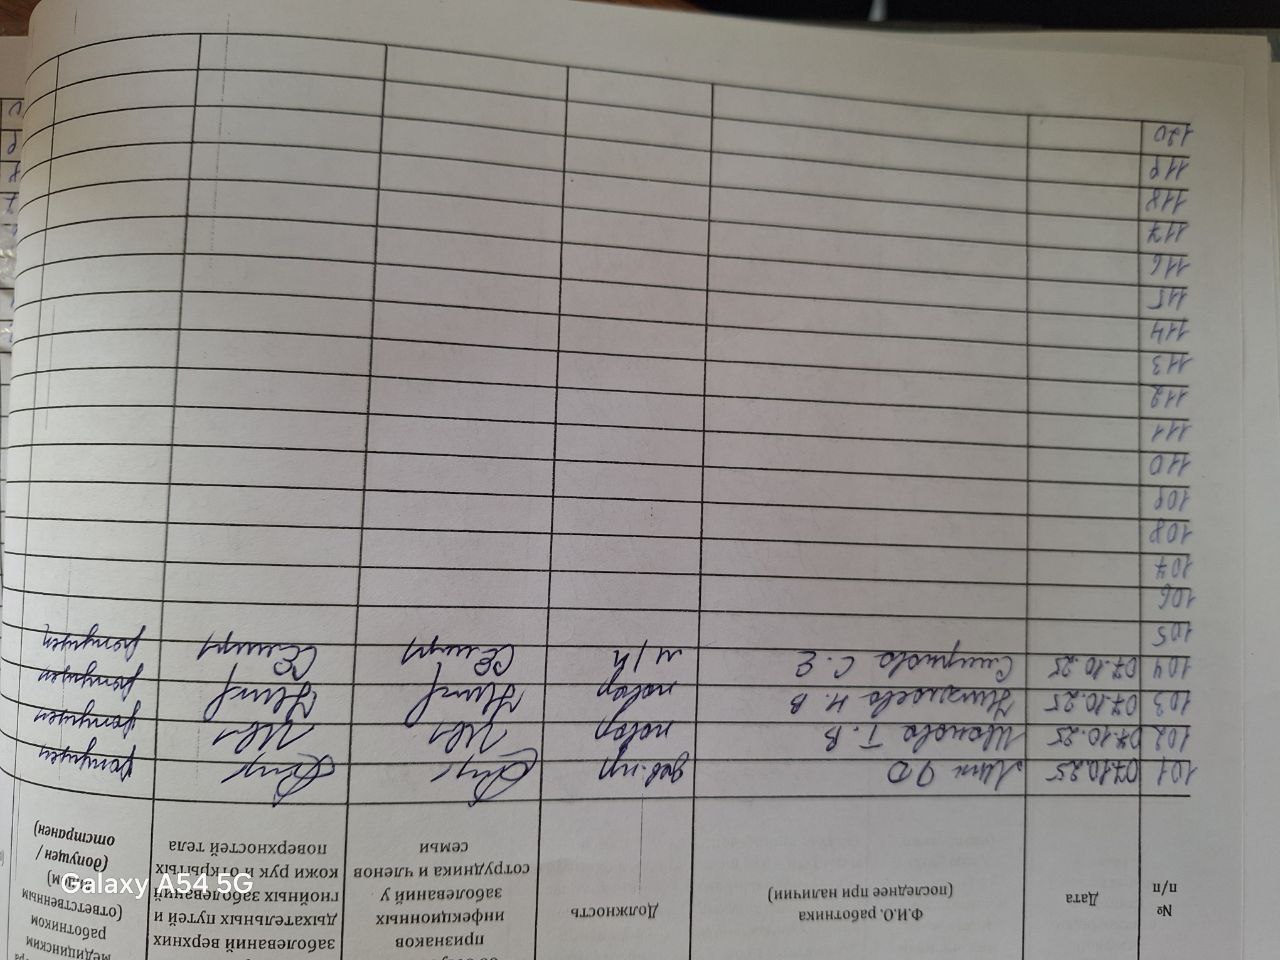 № п/п
Дата
Ф.И.О. работника
(последнее при наличии)
Должность
признаков
инфекционных
заболеваний у
сотрудника и членов
семьи
заболеваний верхних
дыхательных путей и
гнойничных заболеваний
кожи рук и открытых
поверхностей тела
медицинским
работником
(ответственным
лицом)
(допущен /
отстранен)
101 07.10.25 допущен
102 07.10.25 Иванова Т. В повар допущен
103 07.10.25 Н. В повар допущен
104 07.10.25 Смирнова С. Е м/п допущен
105
106
107
108
109
110
111
112
113
114
115
116
117
118
119
120
Galaxy A54 5G